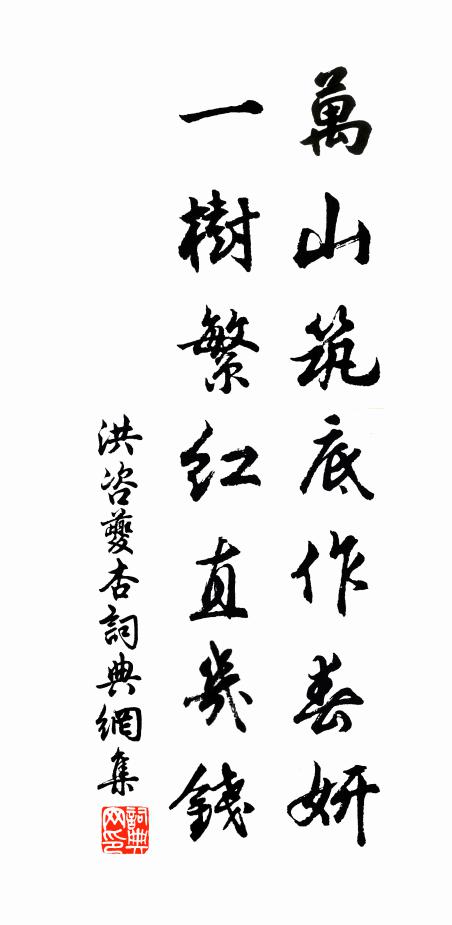 萬山筑底作春妍
一樹繁紅直幾錢
洪咨夔杏詞典網集
詞典网印